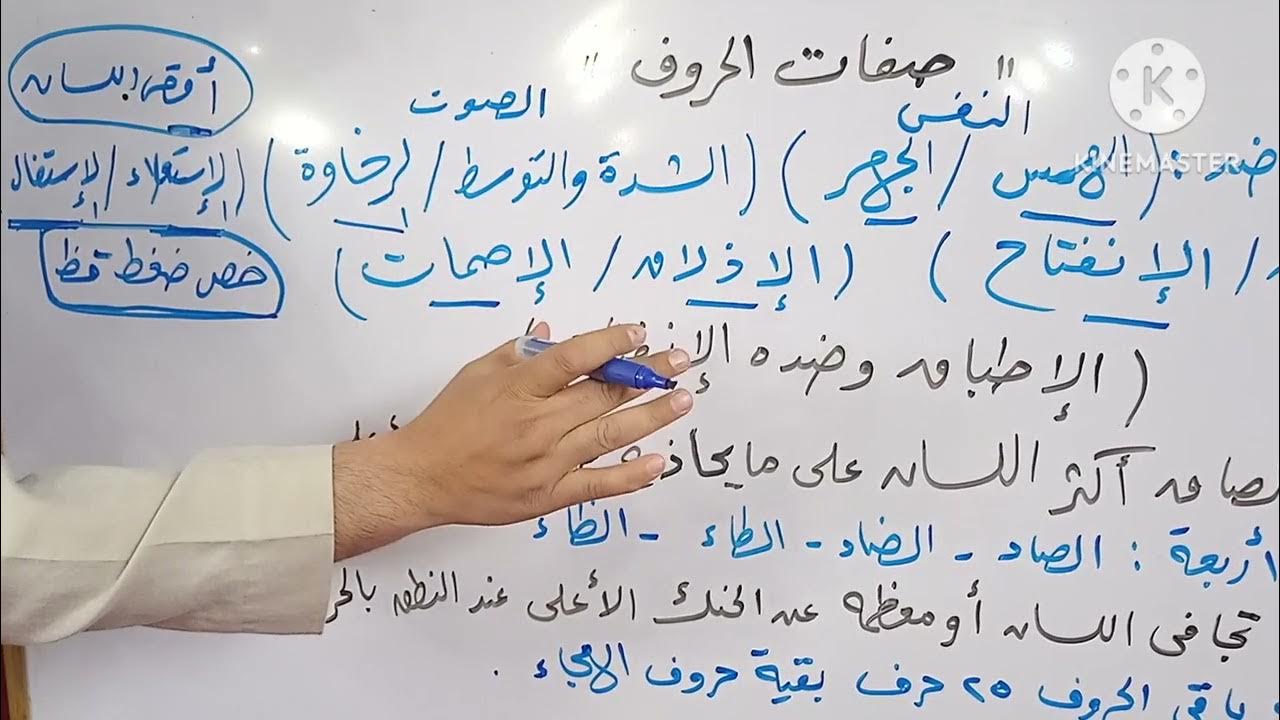 " صفات الحروف "
النفس
الصوت
أقصى اللسان
ضد : (الهمس / الجهر) (الشدة والتوسط / الرخاوة) (الإستعلاء / الإستفال
/ الإنفتاح) (الإذلاق / الإصمات)
خص ضغط قظ
(الإطباق وضده
أكثر اللسان على ما
أربعة : الصاد - الضاد - الطاء - الظاء
تجافي اللسان أو معظمه عن الحنك الأعلى عند النطق
باقي الحروف ٢٥ حرف بقية حروف الهجاء .
K
KINEMASTER